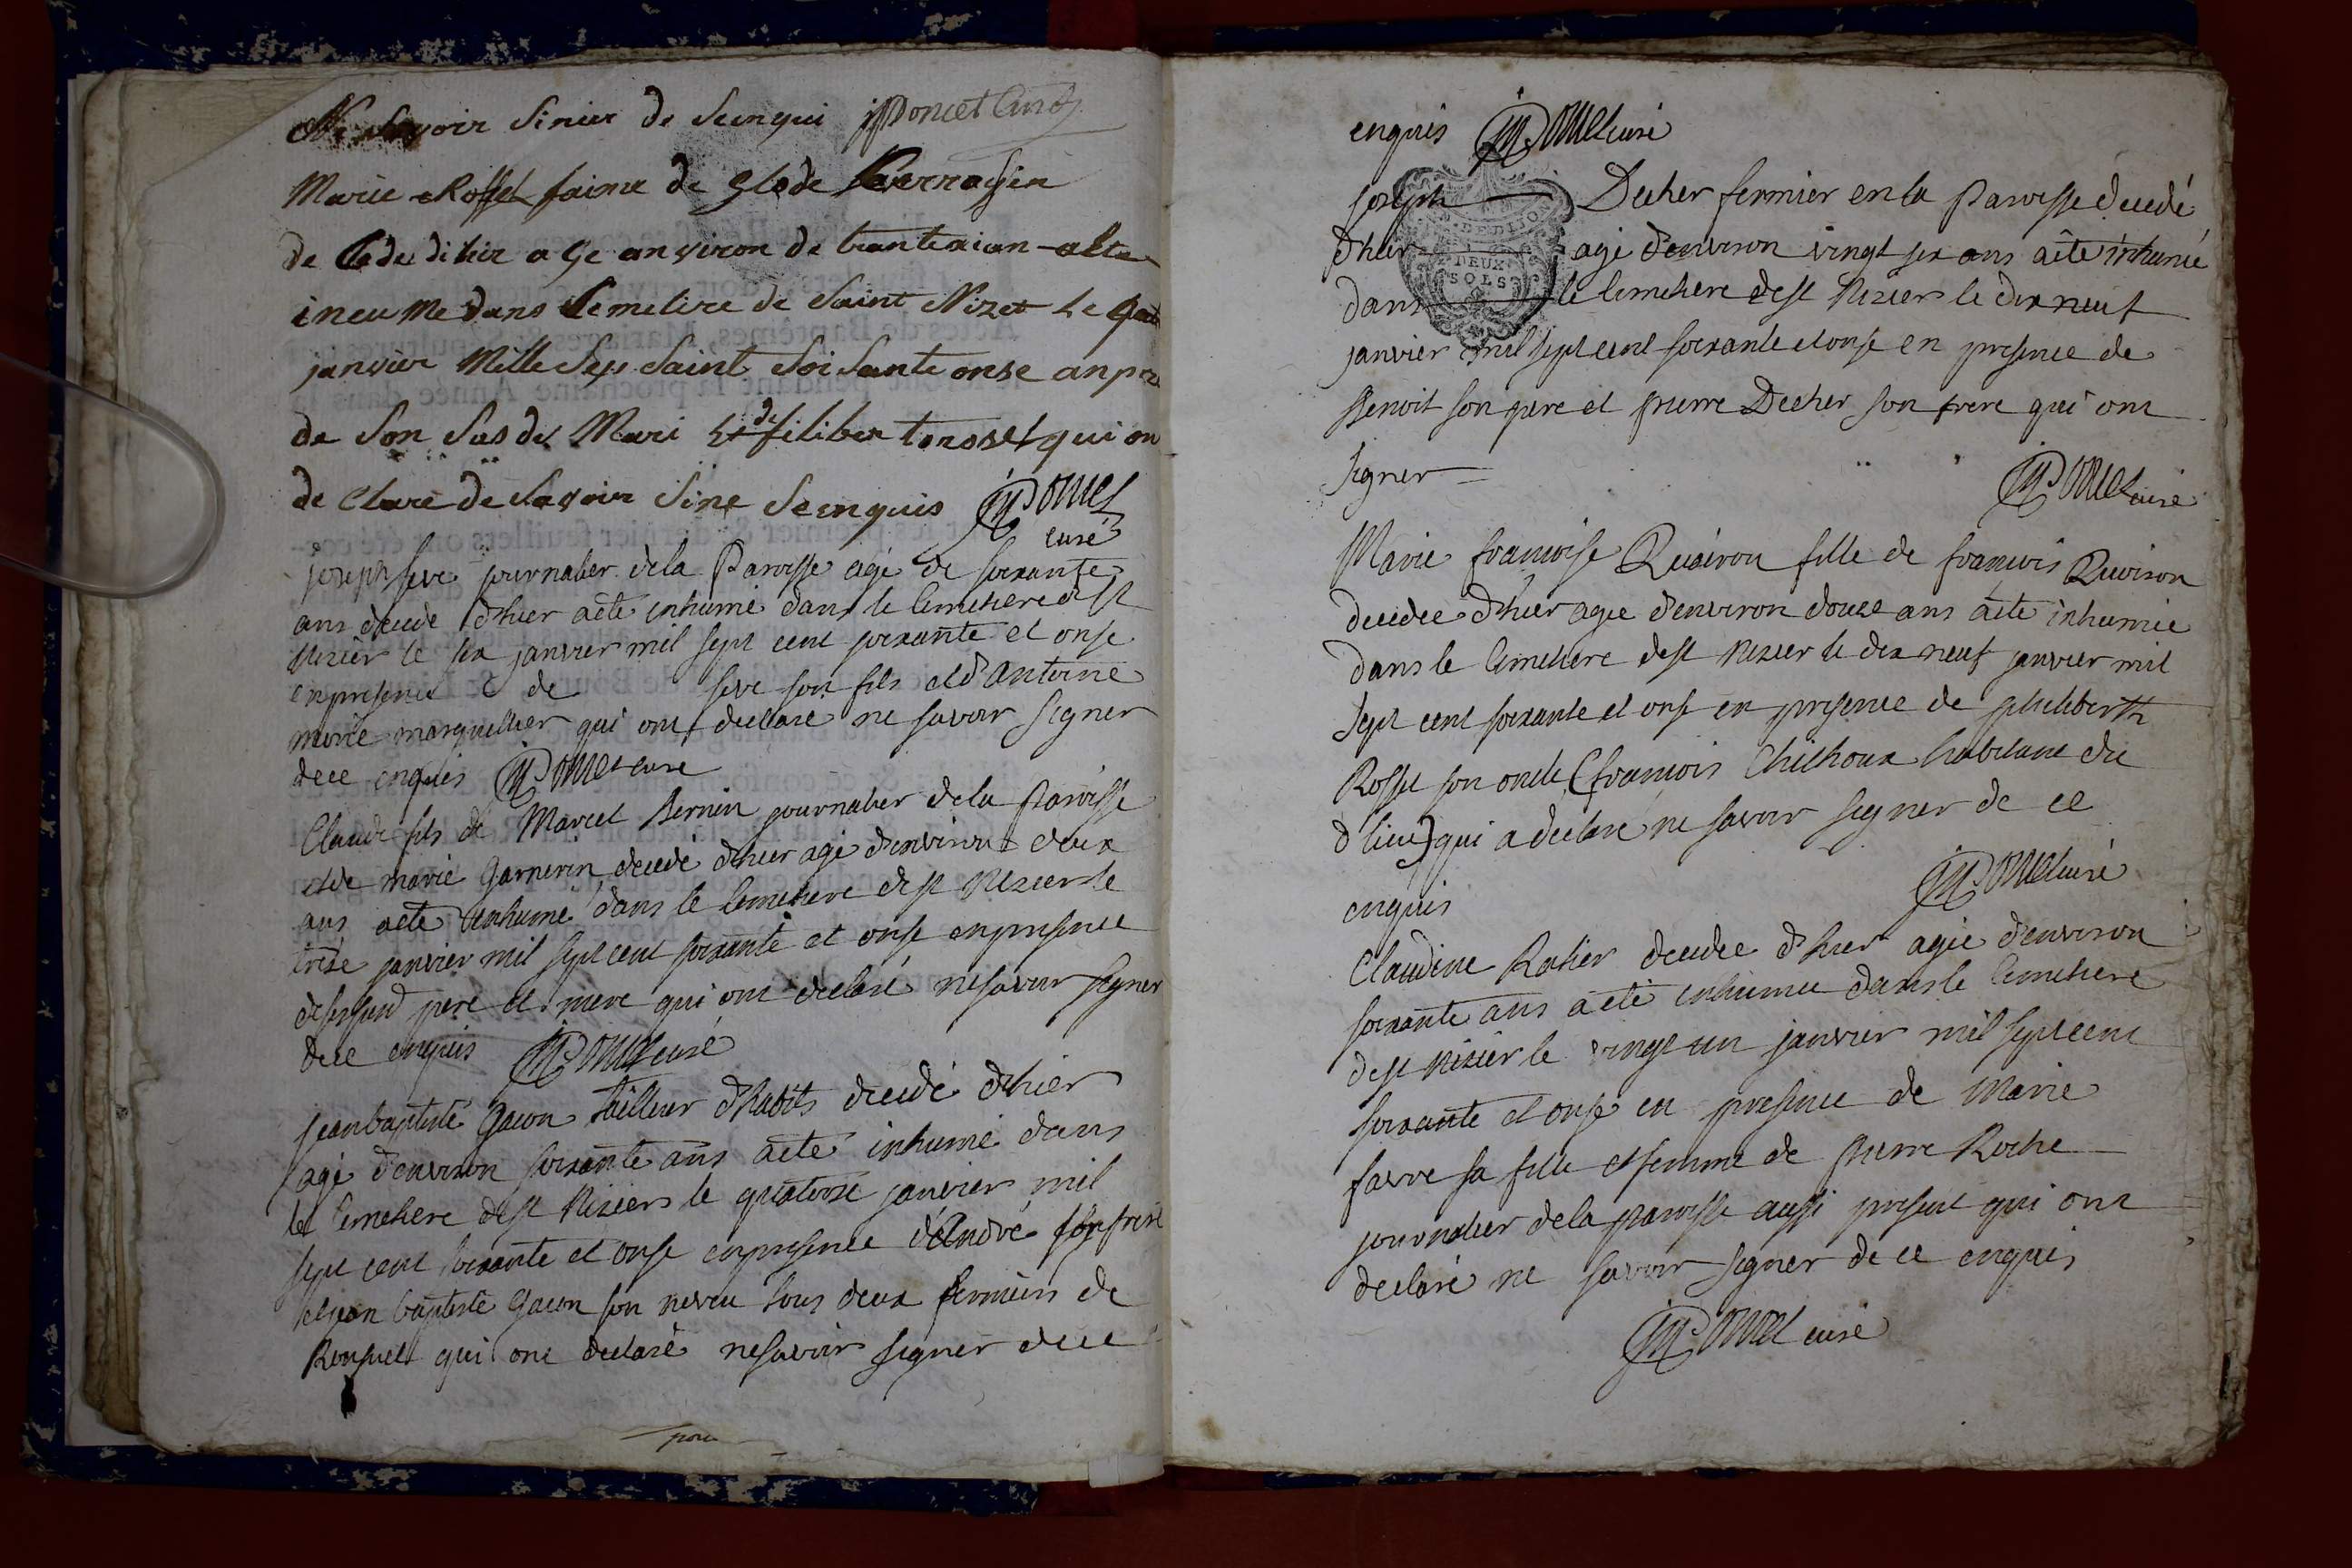 Ne savoir Sinier de Senqui jPoncet Curé
Marie Rossel faime de glode
de Cede di hier a ge anviron de trante ian a ete
ineu Me dans Semetire de Saint Nizet Le
janvier Mille Sep Saint Soisante onse anpre
de Son Sus dit Mari et de filiber toroset qui on
de Clare de Savoir Sine Senquis jPoncet
curé
joseph seve journalier dela Paroisse agé de soixante
ans decede d'hier aété inhumé dans le cimetiere de st
nizier le six janvier mil sept cent soixante et onse
enpresence de seve son fils et d'Antoine
marguillier qui ont declaré ne savoir signer
dece enquis jPoncet curé
Claude fils de Marcel Bernin journalier dela paroisse
et de marie Garnerin decedé d'hier agé d'environ deux
ans aété inhumé dans le cimetiere de st Nizier le
treise janvier mil sept cent soixante et onse enpresence
desesusd pere et mere qui ont declaré nesavoir signer
dece enquis jPoncet curé
jean baptiste Gacon tailleur d'habits decedé d'hier
agé d'environ soixante ans aété inhumé dans
le cimetiere de st Niziers le quatorse janvier mil
sept cent soixante et onse enpresence d'André son frere
et jean baptiste Gacon son neveu tous deux fermiers de
qui ont declaré nesavoir signer dece
enquis jPoncet curé
joseph Decher fermier en la Paroisse decedé
d'hier agé d'environ vingt six ans aété inhumé
DEUX
SOLS
dans le cimetiere de st Nizier le dix neuf
janvier mil sept cent soixante et onse en presence de
Benoit son pere et pierre Decher son frere qui ont
signer
jPoncet curé
Marie francoise fille de francois
decedee d'hier agee d'environ douze ans aété inhumée
dans le cimetiere de st Nizier le dix neuf janvier mil
sept cent soixante et onse en presence de philiberth
Rossel son oncle (francois habitant du
d lieu) qui a declaré ne savoir signer de ce
jPoncet curé
enquis
Claudine Ratier decedee d'hier agée d'environ
soixante ans aété inhumee dans le cimetiere
de st nizier le vingt un janvier mil sept cent
soixante et onse en presence de Marie
favre sa fille et femme de pierre Roche
journalier dela paroisse aussi present qui ont
declaré ne savoir signer de ce enquis
jPoncet curé